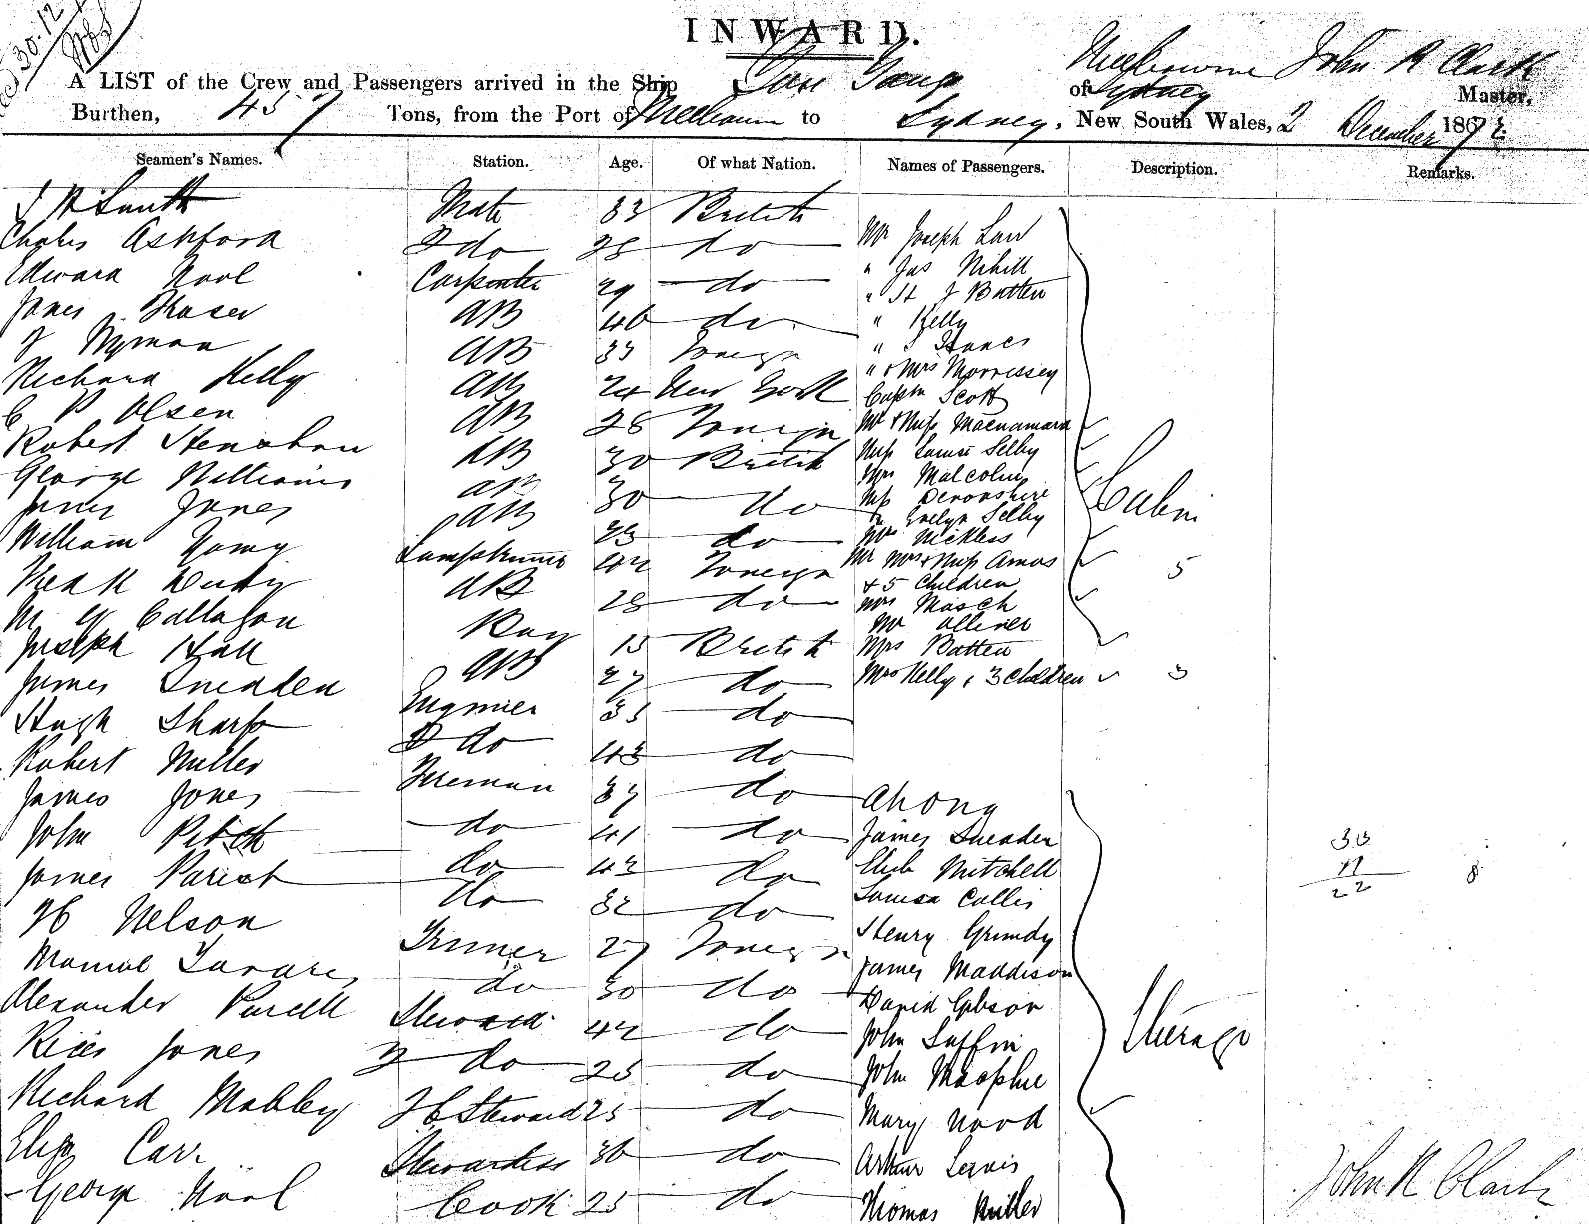 30.12
INWARD.
A LIST of the Crew and Passengers arrived in the Ship of Melbourne John R Clark Master,
Sydney
Burthen, 457 Tons, from the Port of Melbourne to Sydney, New South Wales, 2 December 1872
Seamen's Names. Station. Age. Of what Nation. Names of Passengers. Description. Remarks.
Mate 33 British
Charles Ashford 2 do 28 do Mr Joseph Law
Edward Carpenter 29 do " Jas Nihill
James Fraser AB 40 do " St J Batten
" Kelly
Nyman AB 33 Foreign "
Richard Kelly AB 24 New York " & Mrs Morrissey
Captn Scott
C P Olsen AB 28 Foreign Mr & Miss Macnamara
Robert AB 30 British Miss Selby
George Williams AB 30 do Mrs Malcolm
Miss Devonshire
James Jones AB 23 do Evelyn Selby
Mr Nickless
William Young Lamptrimmer 42 Foreign Mr Mrs & Miss Amos
& 5 Children 5
Frank Duffy AB 28 do Mrs Masch
Mr Olliver
Callaghan Boy 15 British Mrs Batten
Joseph Hall AB 27 do Mrs Kelly & 3 Children 3
James Sneaden Engineer 35 do
Cabin
Hugh Sharp 2 do 43 do
Robert Miller Fireman 37 do Ahong
James Jones do 41 do James Sneaden
John do 43 do Mitchell
James Parish do 32 do Louisa Collis
30
22
8
H Nelson Trimmer 27 Foreign Henry Grundy
James Maddison
do 30 do David Gibson
Alexander Steward 42 do John Saffin
Steerage
Jones 2 do 25 do John Macphie
Richard Mabley F C Steward 25 do Mary Wood
Eliza Carr Stewardess 30 do Arthur Lewis
George Cook 25 do Thomas Butler
John R Clark